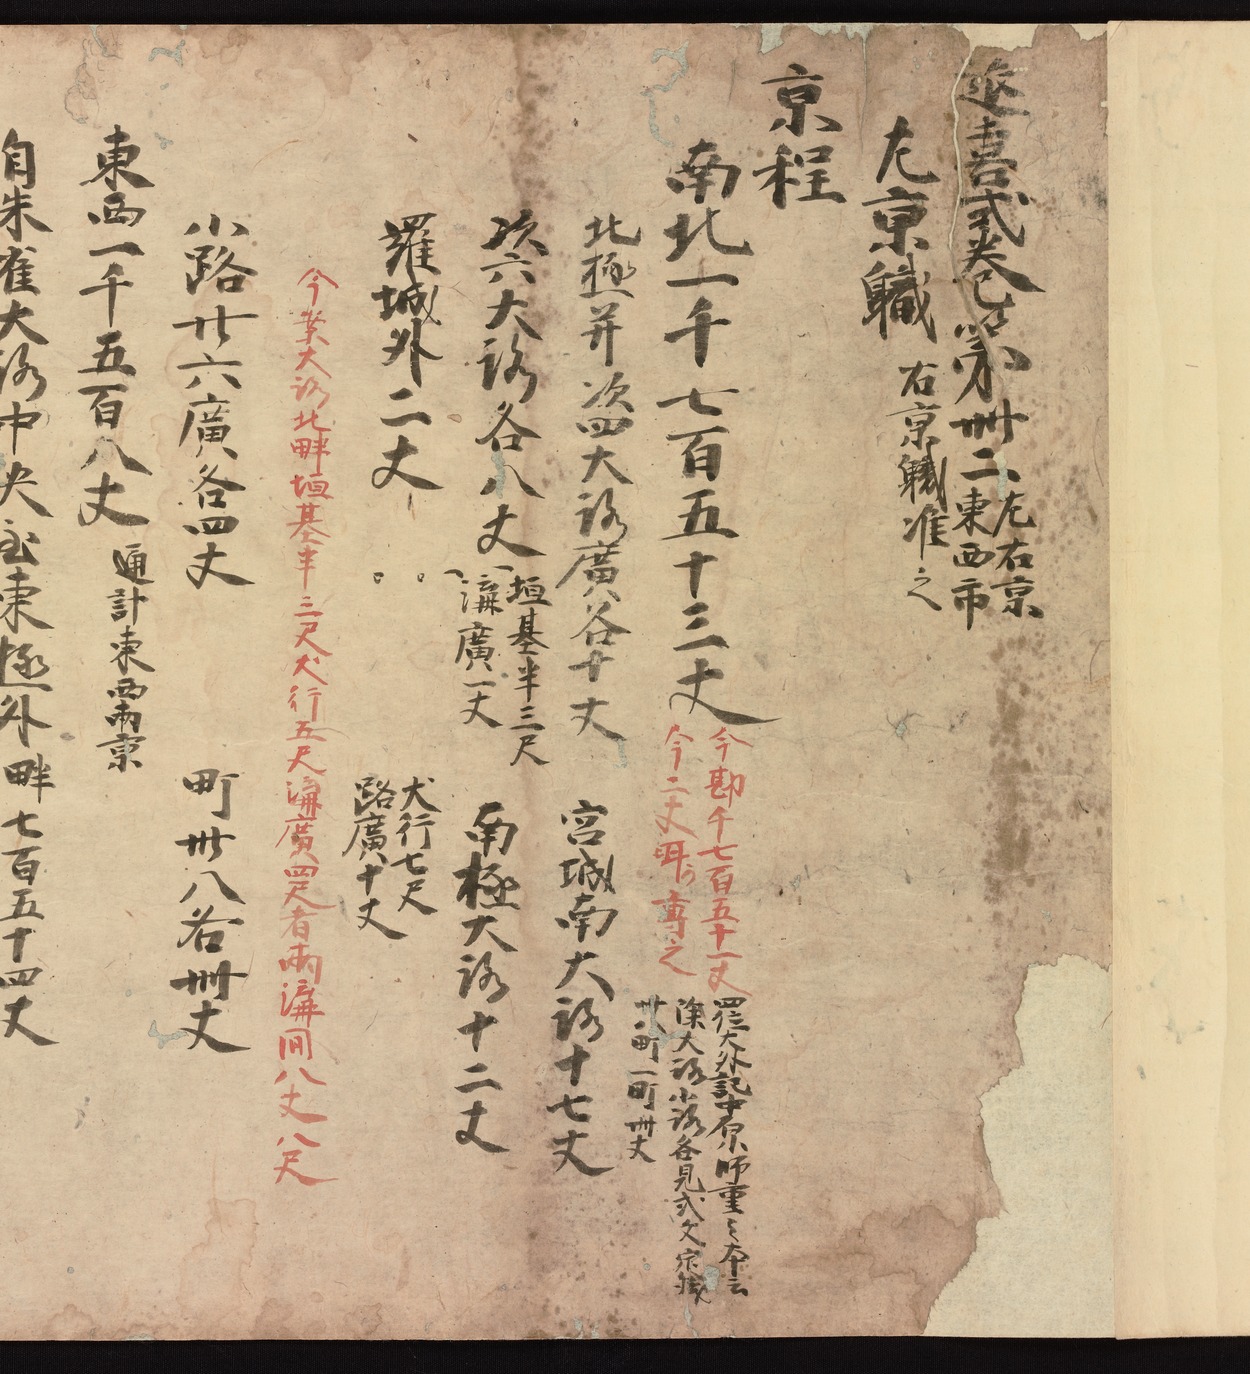 延喜式卷第卌二
左右京
東西市
左京職
右京職准之
京程
南北一千七百五十三丈
今勘千七百五十一丈
今二丈
専之
罡大外記中原師重之本云
除大路小路各見式文
卌八町一町卌丈
北極并次四大路廣各十丈
宮城南大路十七丈
次六大路各八丈
垣基半三尺
溝廣一丈
南極大路十二丈
羅城外二丈
犬行七尺
路廣十丈
今案大路北畔垣基半三尺犬行五尺溝廣四尺者兩溝間八丈八尺
小路廿六廣各四丈
町卅八各卌丈
東西一千五百八丈
通計東西兩京
自朱雀大路中央至東極外畔七百五十四丈